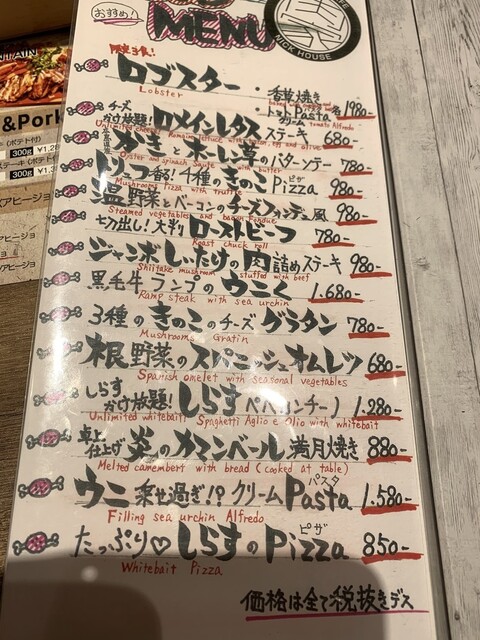 おすすめ!
MENU
NICK HOUSE
限定!
ロブスター
Lobster
・香草焼き
・トマトクリーム Pasta 各1980-
tomato Alfredo
チーズかけ放題! ロメインレタスステーキ 680-
Unlimited cheese Romaine lettuce with bacon, egg and olive
かきとほうれん草のバターソテー 780-
Oyster and spinach saute with butter
香る!4種のきのこPizza ピザ 980-
Mushrooms Pizza with truffle
温野菜とベーコンのチーズフォンデュ風 980-
Steamed vegetables and bacon fondue
七刀出し!大判ローストビーフ 780-
Roast chuck roll
ジャンボしいたけの肉詰めステーキ 980-
Shiitake mushroom stuffed with beef
黒毛牛ランプのウニく 1.680-
Ramp steak with sea urchin
3種のきのこのチーズグラタン 780-
Mushrooms Gratin
根野菜のスペニッシュオムレツ 680-
Spanish omelet with seasonal vegetables
しらすかけ放題! しらすペペロンチーノ 1.280-
Unlimited whitebait! Spaghetti Aglio e Olio with whitebait
卓上仕上げ 炎のカマンベール満月焼き 880-
Melted camembert with bread (cooked at table)
ウニ乗せ過ぎ!?クリームPasta パスタ 1.580-
Filling sea urchin Alfredo
たっぷり♡しらすのPizza ピザ 850-
Whitebait Pizza
価格は全て税抜きデス
&Pork
300g
300g
アヒージョ
アヒージョ
アヒージョ